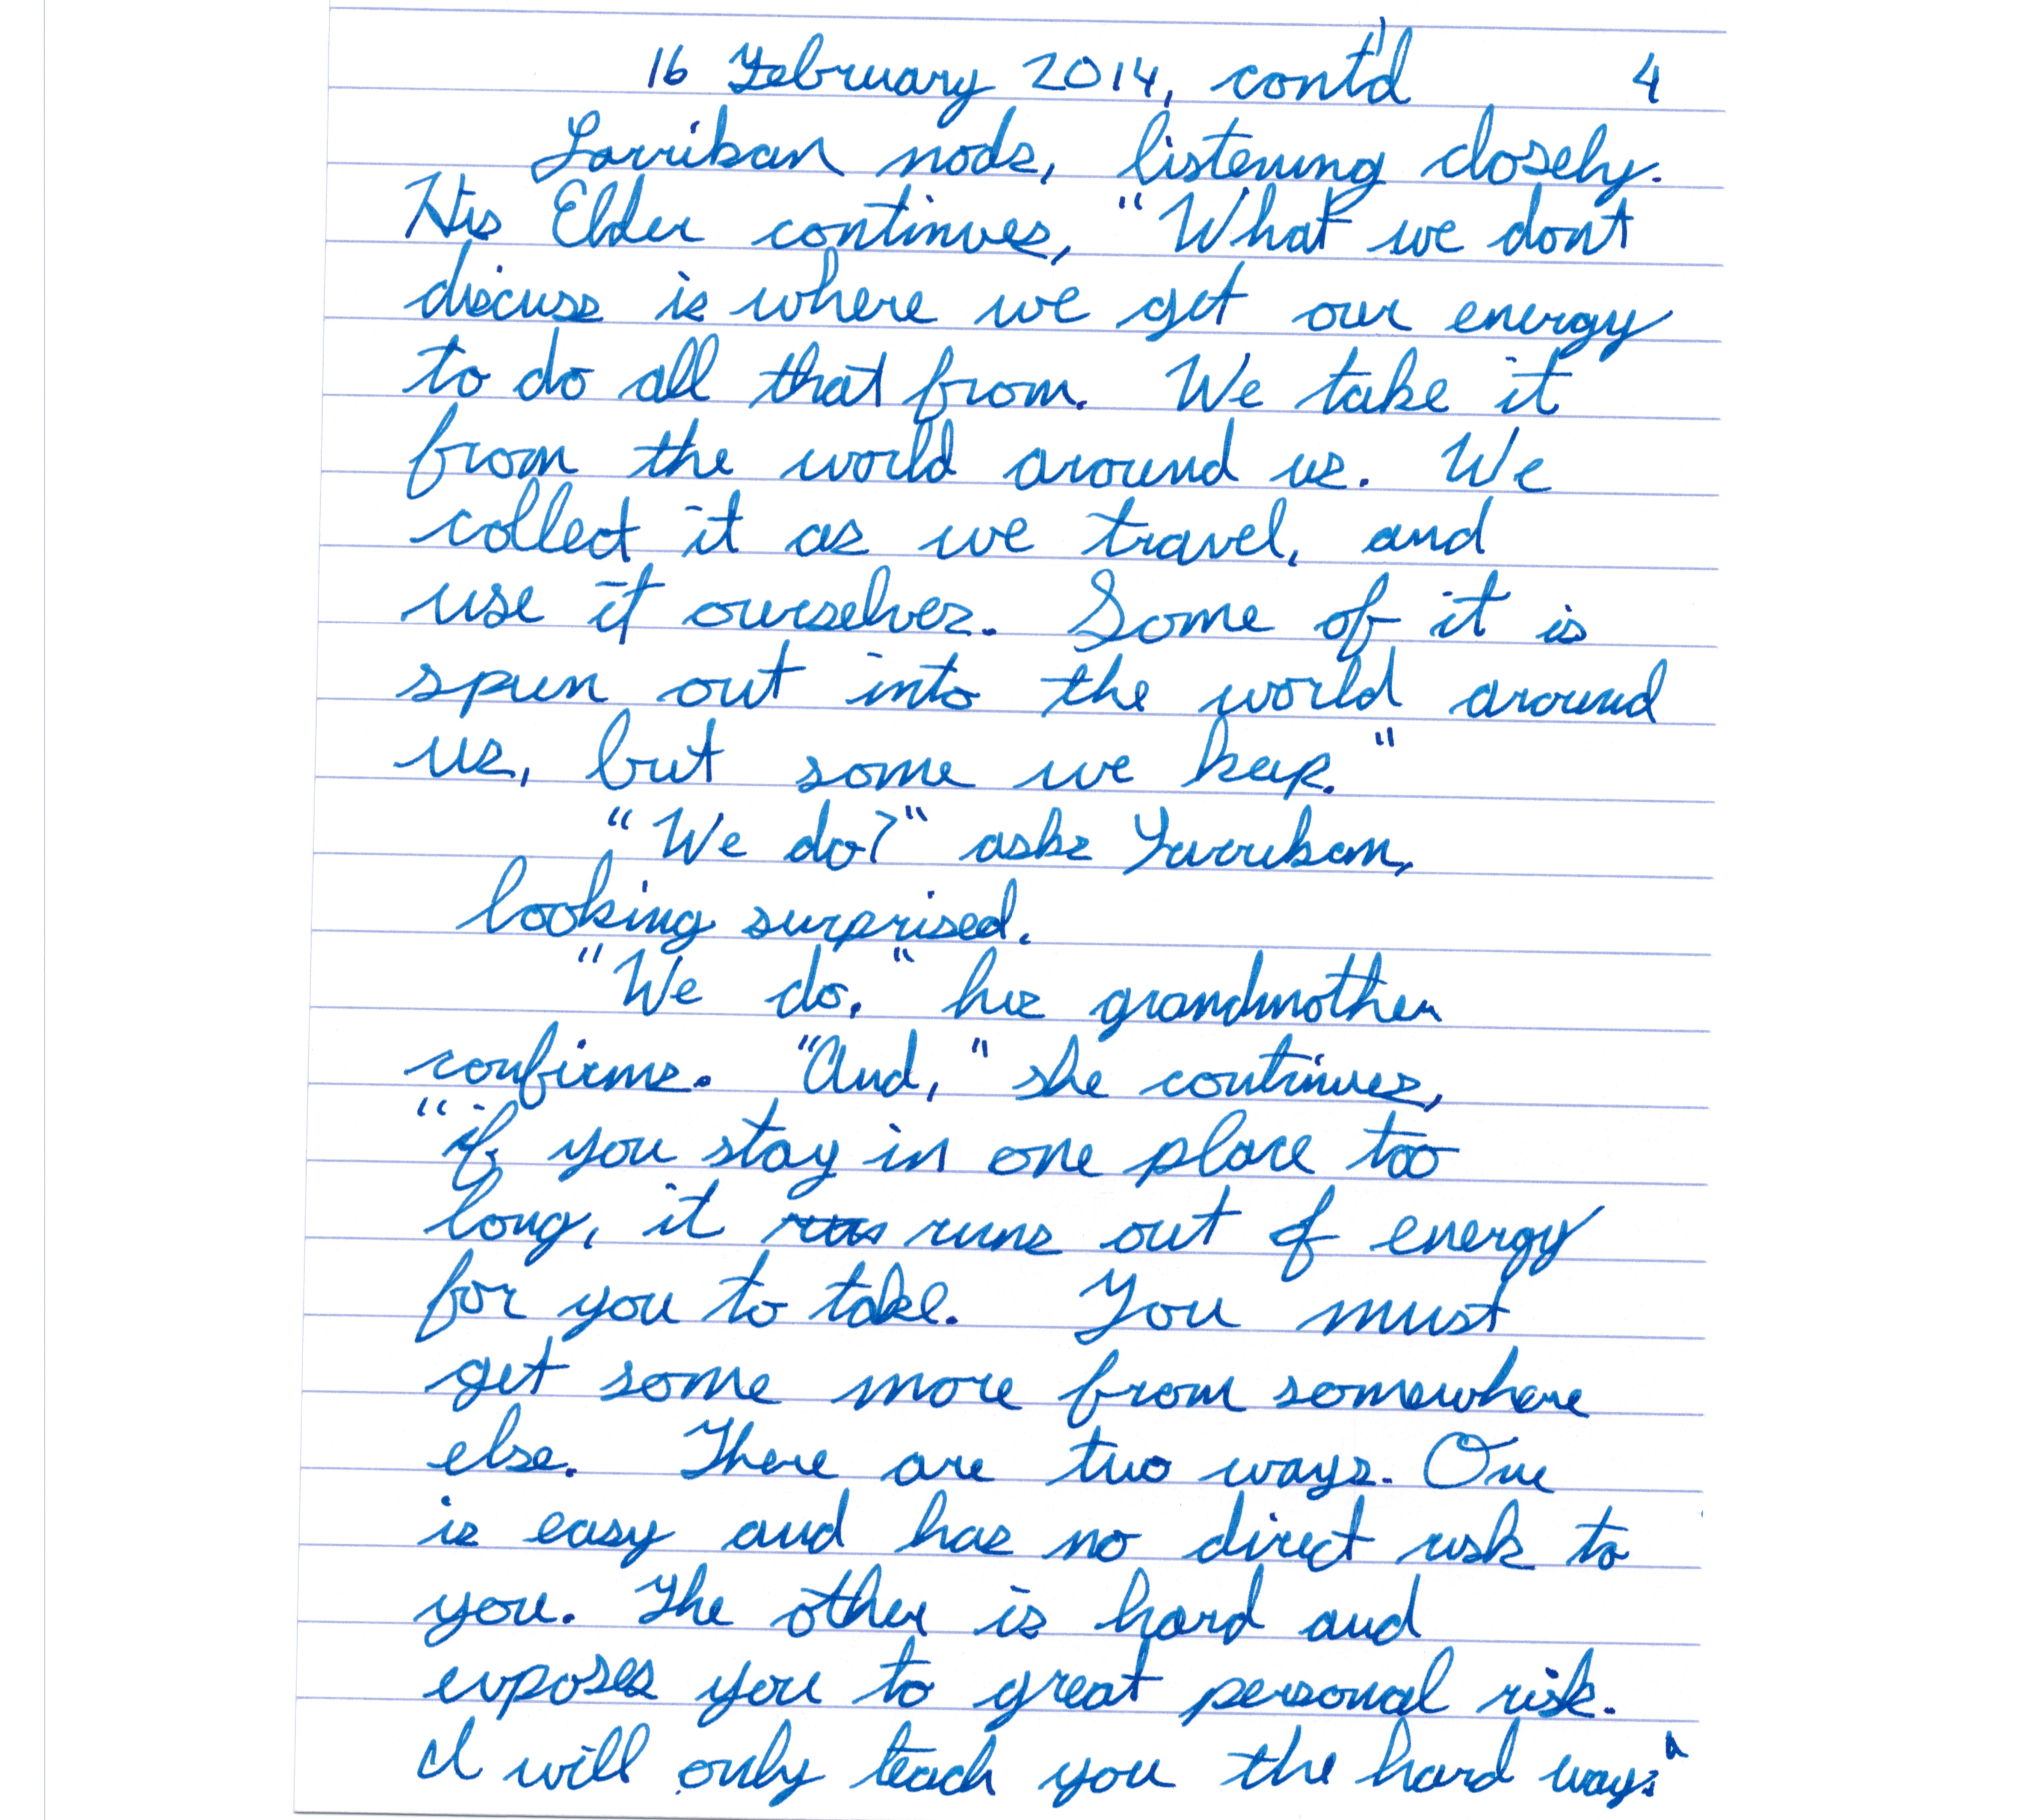 16 February 2014, cont'd 4
Larrikan nods, listening closely.
His Elder continues, "What we don't
discuss is where we get our energy
to do all that from. We take it
from the world around us. We
collect it as we travel, and
use it ourselves. Some of it is
spun out into the world around
us, but some we keep."
"We do?" asks
looking surprised.
"We do," his grandmother
confirms. "And," she continues,
"if you stay in one place too
long, it runs out of energy
for you to take. You must
get some more from somewhere
else. There are two ways. One
is easy and has no direct risk to
you. The other is hard and
exposes you to great personal risk.
I will only teach you the hard way."